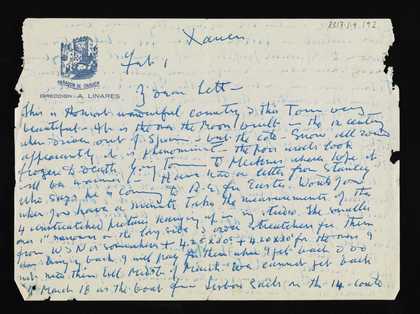 8317.1.4.192
Xauen
PARADOR DE XAUEN
DIRECCION - A. LINARES
Feb 1
Dear Lett
This is a most wonderful country & this Town very
beautiful - It is the one the Moors built in the 15 century
when driven out of Spain - but the cold. Snow all round
apparently it is phenomenal the poor arabs look
frozen to death. going on to Meknes where hope it
will be warmer. Have had a letter from Stanley
who says he is coming to for Easter. Would you
when you have a minute take the measurements of the
4 unstretched pictures hanging up in my studio. The smaller
one 1" narrower on the long side & order stretchers for them
from W & N or somewhere + 4 20 x 20" + 4 20 x 30" for the ones I
am bringing back & will pay for them when I get back. I do
not need them till Middle of March. We cannot get back
till March 18 as the boat from Lisbon sails on the 14.